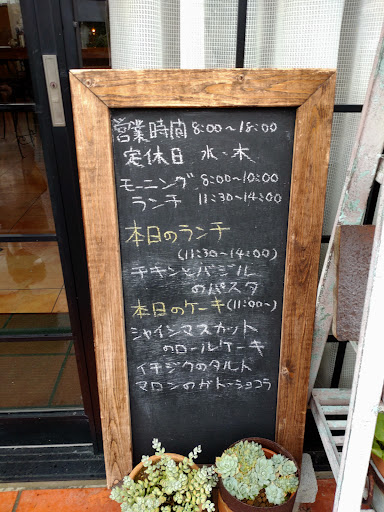 営業時間 8:00〜18:00
定休日 水・木
モーニング 8:00〜10:00
ランチ 11:30〜14:00
本日のランチ
(11:30〜14:00)
チキンとバジル
のパスタ
本日のケーキ(11:00〜)
シャインマスカット
のロールケーキ
イチジクのタルト
マロンのガトーショコラ